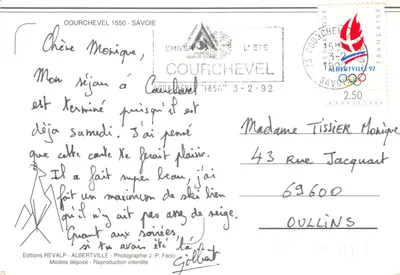 COURCHEVEL 1550 - SAVOIE
Chère Monique,
Mon séjour à Courchevel
est terminé puisqu'il est
déja samedi. J'ai pensé
que cette carte te ferait plaisir.
Il a fait super beau, j'ai
fait un maximum de ski bien
qu'il n'y ait pas assez de neige.
Quant aux soirées,
si tu avais été là
Gilbert
Editions REVALP - ALBERTVILLE - Photographie J. P.
Modèle déposé - Reproduction interdite
L'HIVER L'ÉTÉ
COURCHEVEL
1850 3-2-92
73 COURCHEVEL
15H
3-2
SAVOIE
FRANÇAISE
ALBERTVILLE 92
2,50
Madame TISSIER Monique
43 Rue Jacquart
69600
OULLINS